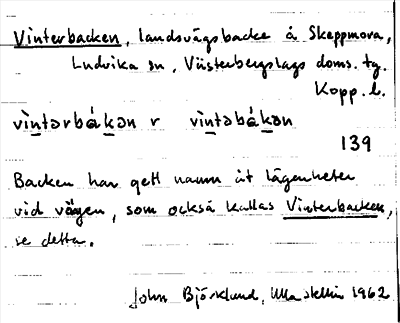 Vinterbacken, landsvägsbacke å Skeppmora,
Ludvika sn, Västerbergslags doms. tg.
Kopp. l.
vìntərbákən r vìntəbákən
139
Backen har gett namn åt lägenheter
vid vägen, som också kallas Vinterbacken,
se detta.
John Björklund, Ulla Stellin 1962